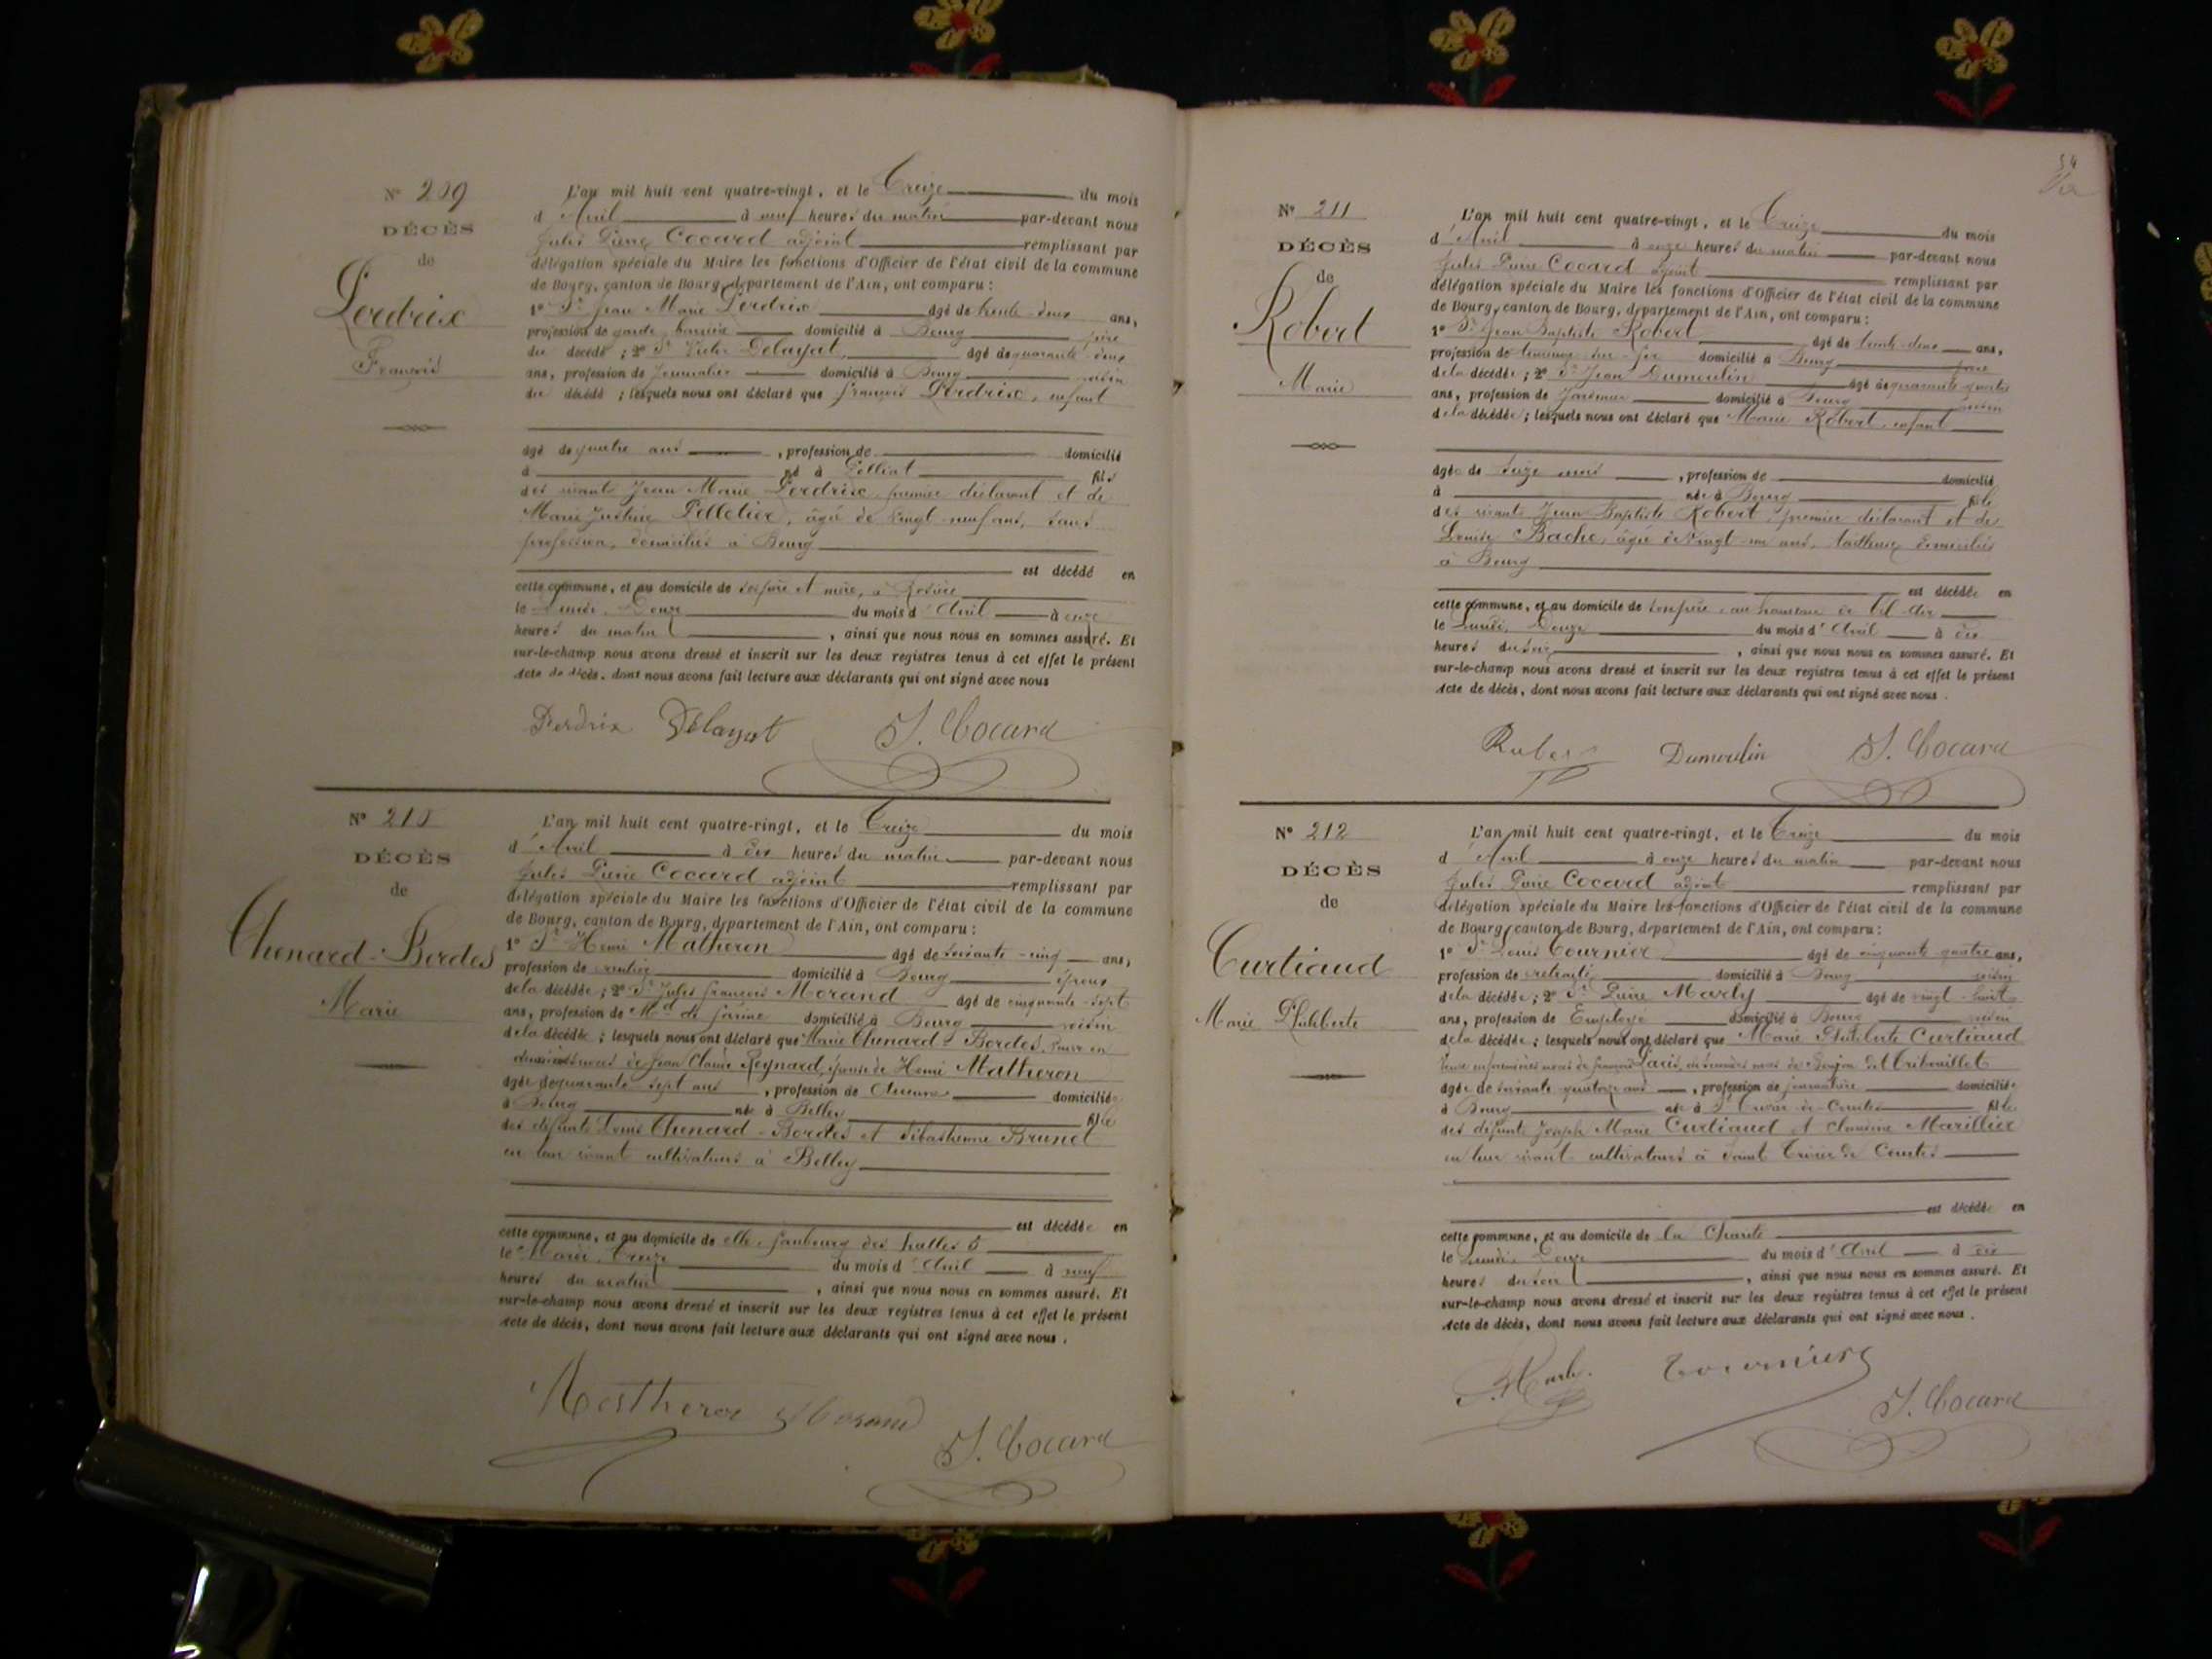 N° 209
DÉCÈS
de
Perdrix
François
L'an mil huit cent quatre-vingt, et le Treize du mois
d'Avril à neuf heures du matin par-devant nous
Jules Pierre Cocard adjoint remplissant par
délégation spéciale du Maire les fonctions d'Officier de l'état civil de la commune
de Bourg, canton de Bourg, département de l'Ain, ont comparu :
1° Sr Jean Marie Perdrix âgé de trente-deux ans,
profession de garde barrière domicilié à Bourg père
du décédé ; 2° Sr Victor Delayat âgé de quarante-deux
ans, profession de Journalier domicilié à Bourg voisin
du décédé ; lesquels nous ont déclaré que François Perdrix, enfant
âgé de quatre ans, profession de domicilié
à né à Polliat fils
des vivants Jean Marie Perdrix, premier déclarant et de
Marie Justine Pelletier, âgée de vingt-neuf ans, sans
profession, domiciliés à Bourg
est décédé en
cette commune, et au domicile de ses père et mère, à
le Lundi, Douze du mois d'Avril à onze
heures du matin, ainsi que nous nous en sommes assuré. Et
sur-le-champ nous avons dressé et inscrit sur les deux registres tenus à cet effet le présent
Acte de décès, dont nous avons fait lecture aux déclarants qui ont signé avec nous
Perdrix Delayat J. Cocard
N° 210
DÉCÈS
de
Chenard-Bordes
Marie
L'an mil huit cent quatre-vingt, et le Treize du mois
d'Avril à dix heures du matin par-devant nous
Jules Pierre Cocard adjoint remplissant par
délégation spéciale du Maire les fonctions d'Officier de l'état civil de la commune
de Bourg, canton de Bourg, département de l'Ain, ont comparu :
1° Sr Henri Matheron âgé de soixante-cinq ans,
profession de rentier domicilié à Bourg époux
de la décédée ; 2° Sr Jules François Morand âgé de cinquante-sept
ans, profession de Md de farine domicilié à Bourg voisin
de la décédée ; lesquels nous ont déclaré que Marie Chenard-Bordes, veuve en
noces de Jean Claude Reynard, épouse de Henri Matheron
âgée de quarante-sept ans, profession de domiciliée
à Bourg née à Belley fille
des défunts Louis Chenard-Bordes et Sébastienne Brunet
en leur vivant cultivateurs à Belley
est décédée en
cette commune, et au domicile de elle, faubourg des halles 5
le Mardi, Treize du mois d'Avril à neuf
heures du matin, ainsi que nous nous en sommes assuré. Et
sur-le-champ nous avons dressé et inscrit sur les deux registres tenus à cet effet le présent
Acte de décès, dont nous avons fait lecture aux déclarants qui ont signé avec nous.
Matheron Morand J. Cocard
54
N° 211
DÉCÈS
de
Robert
Marie
L'an mil huit cent quatre-vingt, et le Treize du mois
d'Avril à onze heures du matin par-devant nous
Jules Pierre Cocard adjoint remplissant par
délégation spéciale du Maire les fonctions d'Officier de l'état civil de la commune
de Bourg, canton de Bourg, département de l'Ain, ont comparu :
1° Sr Jean Baptiste Robert âgé de trente-deux ans,
profession de tourneur sur fer domicilié à Bourg père
de la décédée ; 2° Sr Jean Dumoulin âgé de quarante-quatre
ans, profession de Jardinier domicilié à Bourg voisin
de la décédée ; lesquels nous ont déclaré que Marie Robert, enfant
âgée de seize mois, profession de domicilié
à née à Bourg fille
des vivants Jean Baptiste Robert, premier déclarant et de
Louise Bache, âgée de vingt-un ans, tailleuse, domiciliés
à Bourg
est décédée en
cette commune, et au domicile de son père, au hameau de Bel-Air
le Lundi, Douze du mois d'Avril à dix
heures du soir, ainsi que nous nous en sommes assuré. Et
sur-le-champ nous avons dressé et inscrit sur les deux registres tenus à cet effet le présent
Acte de décès, dont nous avons fait lecture aux déclarants qui ont signé avec nous.
Robert Dumoulin J. Cocard
N° 212
DÉCÈS
de
Curtiaud
Marie Philiberte
L'an mil huit cent quatre-vingt, et le Treize du mois
d'Avril à onze heures du matin par-devant nous
Jules Pierre Cocard adjoint remplissant par
délégation spéciale du Maire les fonctions d'Officier de l'état civil de la commune
de Bourg, canton de Bourg, département de l'Ain, ont comparu :
1° Sr Louis Tournier âgé de cinquante-quatre ans,
profession de retraité domicilié à Bourg voisin
de la décédée ; 2° Sr Pierre Marly âgé de vingt-huit
ans, profession de Employé domicilié à Bourg voisin
de la décédée ; lesquels nous ont déclaré que Marie Philiberte Curtiaud
veuve en premières noces de François en dernières noces de
âgée de soixante-quatorze ans, profession de journalière domiciliée
à Bourg née à St Trivier-de-Courtes fille
des défunts Joseph Marie Curtiaud et Claudine Marillier
en leur vivant cultivateurs à Saint Trivier de Courtes
est décédée en
cette commune, et au domicile de la Charité
le Lundi, Douze du mois d'Avril à dix
heures du soir, ainsi que nous nous en sommes assuré. Et
sur-le-champ nous avons dressé et inscrit sur les deux registres tenus à cet effet le présent
Acte de décès, dont nous avons fait lecture aux déclarants qui ont signé avec nous.
Tournier
J. Cocard